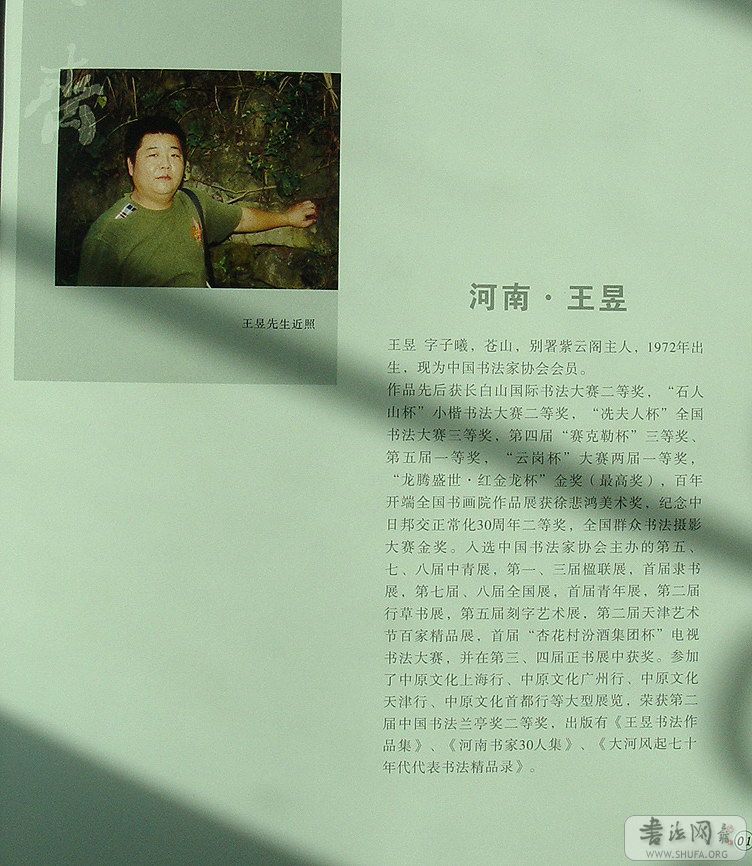 王昱先生近照
河南·王昱
王昱 字子曦，苍山，别署紫云阁主人，1972年出
生，现为中国书法家协会会员。
作品先后获长白山国际书法大赛二等奖，“石人
山杯”小楷书法大赛二等奖，“冼夫人杯”全国
书法大赛三等奖，第四届“赛克勒杯”三等奖、
第五届一等奖，“云岗杯”大赛两届一等奖，
“龙腾盛世·红金龙杯”金奖（最高奖），百年
开端全国书画院作品展获徐悲鸿美术奖，纪念中
日邦交正常化30周年二等奖，全国群众书法摄影
大赛金奖。入选中国书法家协会主办的第五、
七、八届中青展，第一、三届楹联展，首届隶书
展，第七届、八届全国展，首届青年展，第二届
行草书展，第五届刻字艺术展，第二届天津艺术
节百家精品展，首届“杏花村汾酒集团杯”电视
书法大赛，并在第三、四届正书展中获奖。参加
了中原文化上海行、中原文化广州行、中原文化
天津行、中原文化首都行等大型展览，荣获第二
届中国书法兰亭奖二等奖，出版有《王昱书法作
品集》、《河南书家30人集》、《大河风起七十
年代代表书法精品录》。
书法网
WWW.SHUFA.ORG
01